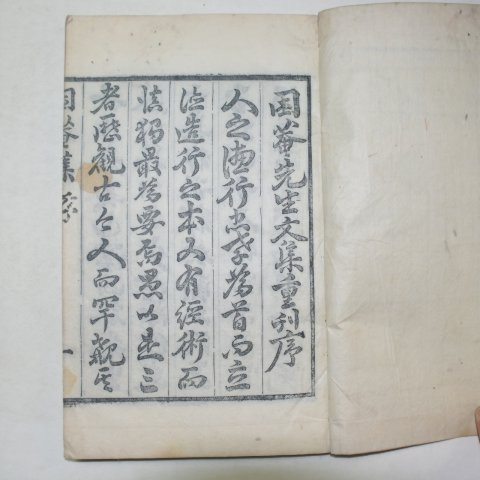 困菴先生文集重刊序
人之德行孝爲首而立
德造行之本又有經術而
愼獨最爲要焉愚以是三
者歷觀古今人而罕覯其
困菴集序 一